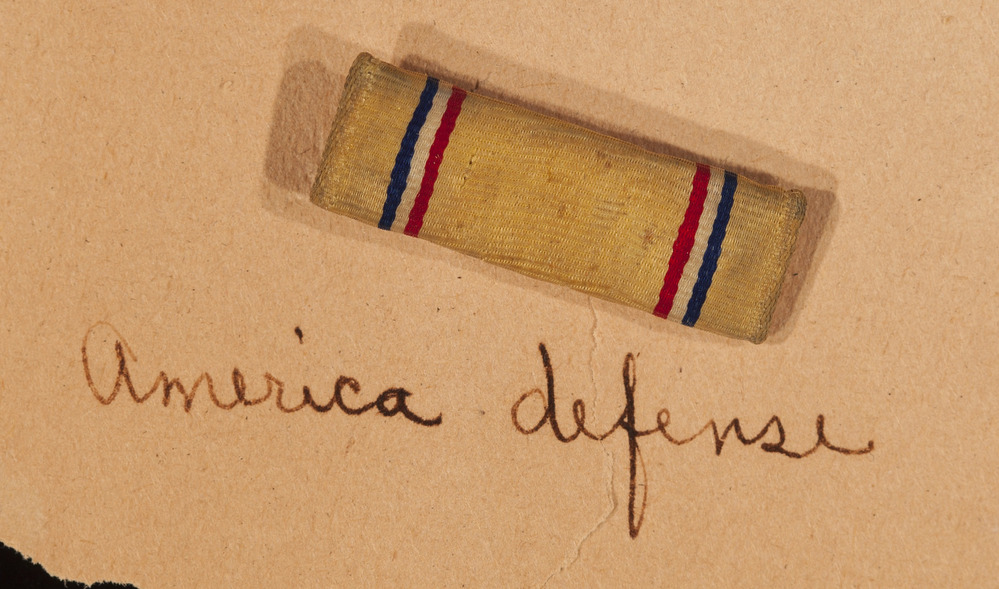 America defense